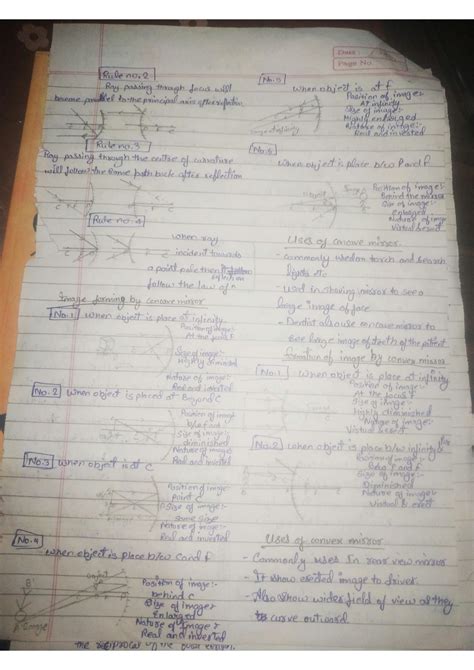 Date:
Page No.
Rule no. 2
Ray passing through focus will
become parallel to the principal axis after reflection
Rule no. 3
Ray passing through the centre of curvature
will follow the same path back after reflection
Rule no. 4
when ray
incident towards
a point pole then
follow the law of
Image forming by concave mirror
No.1 when object is place at infinity
Position of image:-
At the focus F
Size of image:-
Highly diminished
Nature of image:-
Real and inverted
No.2 when object is placed at Beyond C
Position of image
b/w F and C
Size of image:-
diminished
Nature of image
Real and inverted
No.3 when object is at C
Position of image:-
Point C
Size of image:-
same size
Nature of image:-
Real and inverted
No.4
when object is place b/w C and F
object
Image
Position of image:-
behind C
Size of image:
Enlarged
Nature of image:-
Real and inverted
No.5 when object is at f
Position of image:
At infinity
Size of image:-
Highly enlarged
Nature of image:-
Real and inverted
No.6
when object is place b/w P and F
Position of image:-
Behind the mirror
Size of image:-
Enlarged
Nature of
Virtual &
Uses of concave mirror
- commonly used on torch and search
lights
- used in shaving mirror to see a
large image of face
- Dentist also use concave mirror to
see large image of teeth of the patient
of image by convex mirror
No.1 when object is place at infinity
Position of image:-
At the focus F
Size of image:-
highly diminished
Nature of image:-
Virtual &
No.2 when object is place b/w infinity
of image:-
b/w P and F
Size of image:-
Diminished
Nature of image:-
Virtual &
Uses of convex mirror
- Commonly uses in rear view mirror
- It show erected image to driver
- Also show wider field of view as they
curve outward